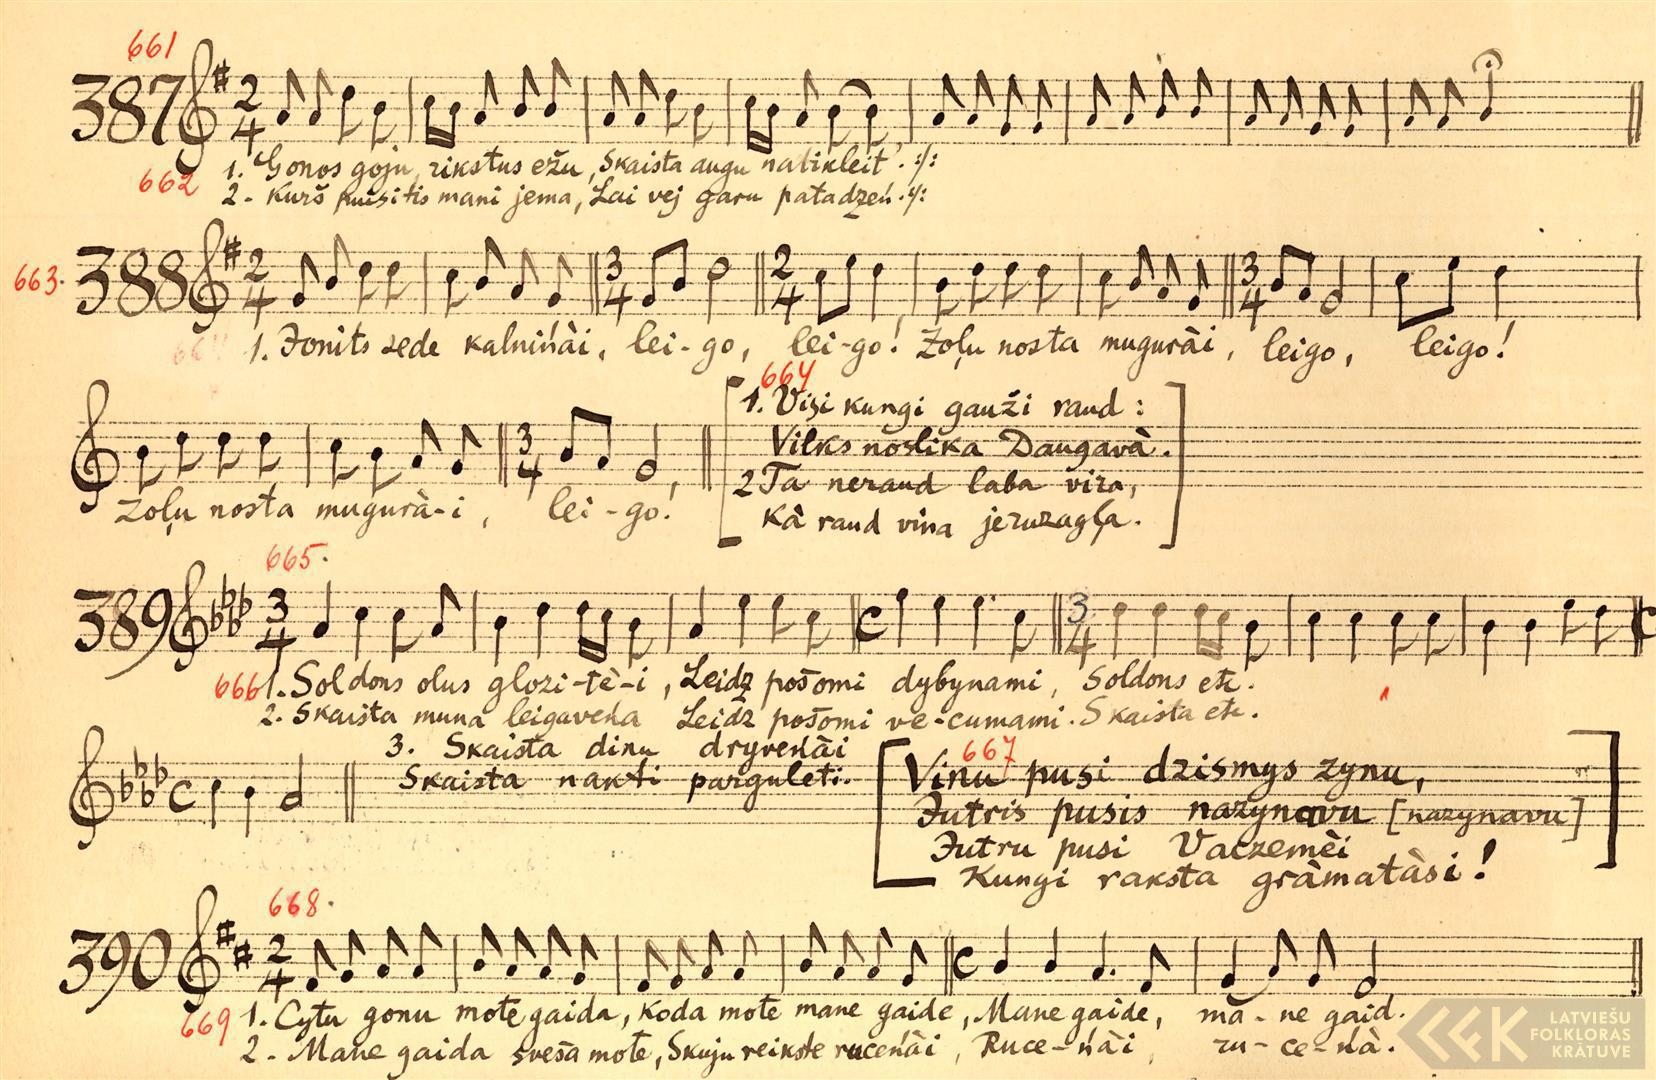 661
387 2/4
1. Gonos goju, rikstus ežu, Skaista augu natikleit'. :/:
662
2. Kurš puisitis mani jema, Lai vej garu patadzeń. :/:
663.
388 2/4 3/4 2/4 3/4
1. Jonits sede kalnińài, lei-go, lei-go! Zoļu nosta mugurài, leigo, leigo!
3/4
zoļu nosta mugurà-i, lei-go!
664
1. Visi kungi gauži raud:
Vilks noslika Daugavà.
2 Ta neraud laba vira,
Kà raud vina jeruzagļa.
665.
389 3/4 C 3/4 C
666
1. Soldons olus glozi-tè-i, Leidz pošomi dybynami, Soldons etc.
2. Skaista muna leigaveńa Leidz pošomi ve-cumami. Skaista etc.
3. Skaista dinu dryveńài
Skaista nakti parguleti.
C
667
[Vinu pusi dzismys zynu,
Jutris pusis nazynavu [nazynavu]
Jutru pusi Vaczemèi
Kungi raksta gràmatàsi!]
668.
390 2/4 C
669
1. Cytu gonu mote gaida, Koda mote mane gaide, Mane gaide, mā-ne gaid.
2. Mane gaida sveša mote, Skuju reikste ruceńài, Ruce-ńài, ru-ce-ńà.
LATVIEŠU
FOLKLORAS
KRĀTUVE